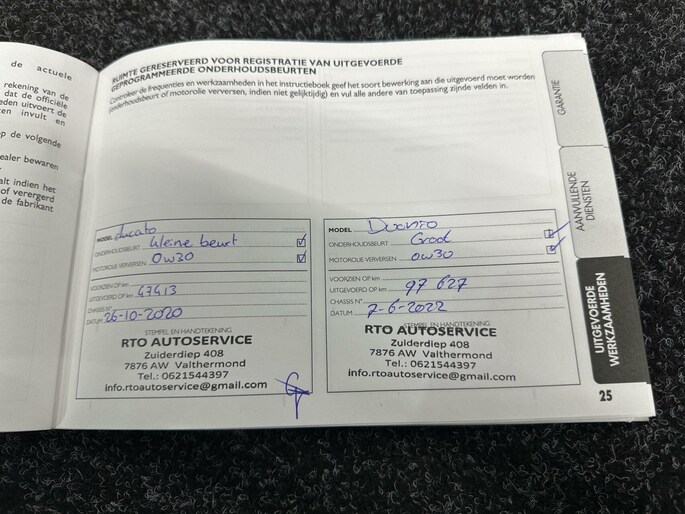 de actuele
rekening van de
dat de officiële
eden uitvoert de
ten invult en
op de volgende
ealer bewaren
alt indien het
of verergerd
de fabrikant
RUIMTE GERESERVEERD VOOR REGISTRATIE VAN UITGEVOERDE
GEPROGRAMMEERDE ONDERHOUDSBEURTEN
Controleer de frequenties en werkzaamheden in het instructieboek geef het soort bewerking aan die uitgevoerd moet worden
(onderhoudsbeurt of motorolie verversen, indien niet gelijktijdig) en vul alle andere van toepassing zijnde velden in.
MODEL ducato
ONDERHOUDSBEURT kleine beurt
MOTOROLIE VERVERSEN 0w30
VOORZIEN OP km
UITGEVOERD OP km 47413
CHASSIS N°
DATUM 26-10-2020
STEMPEL EN HANDTEKENING
RTO AUTOSERVICE
Zuiderdiep 408
7876 AW Valthermond
Tel.: 0621544397
info.rtoautoservice@gmail.com
MODEL
ONDERHOUDSBEURT Groot
MOTOROLIE VERVERSEN 0w30
VOORZIEN OP km
UITGEVOERD OP km 97 627
CHASSIS N°
DATUM 7-6-2022
STEMPEL EN HANDTEKENING
RTO AUTOSERVICE
Zuiderdiep 408
7876 AW Valthermond
Tel.: 0621544397
info.rtoautoservice@gmail.com
GARANTIE
AANVULLENDE
DIENSTEN
UITGEVOERDE
WERKZAAMHEDEN
25